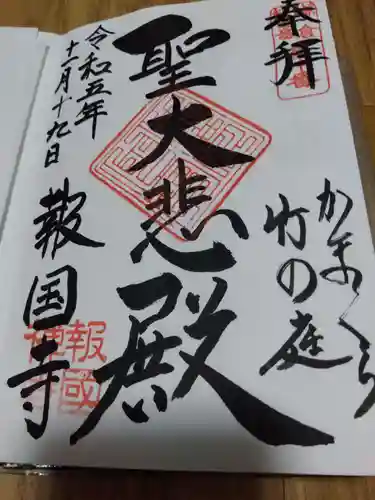 奉拝
かまくら
竹の庭
聖大悲殿
令和五年
十一月十九日
報国寺
報國禅寺